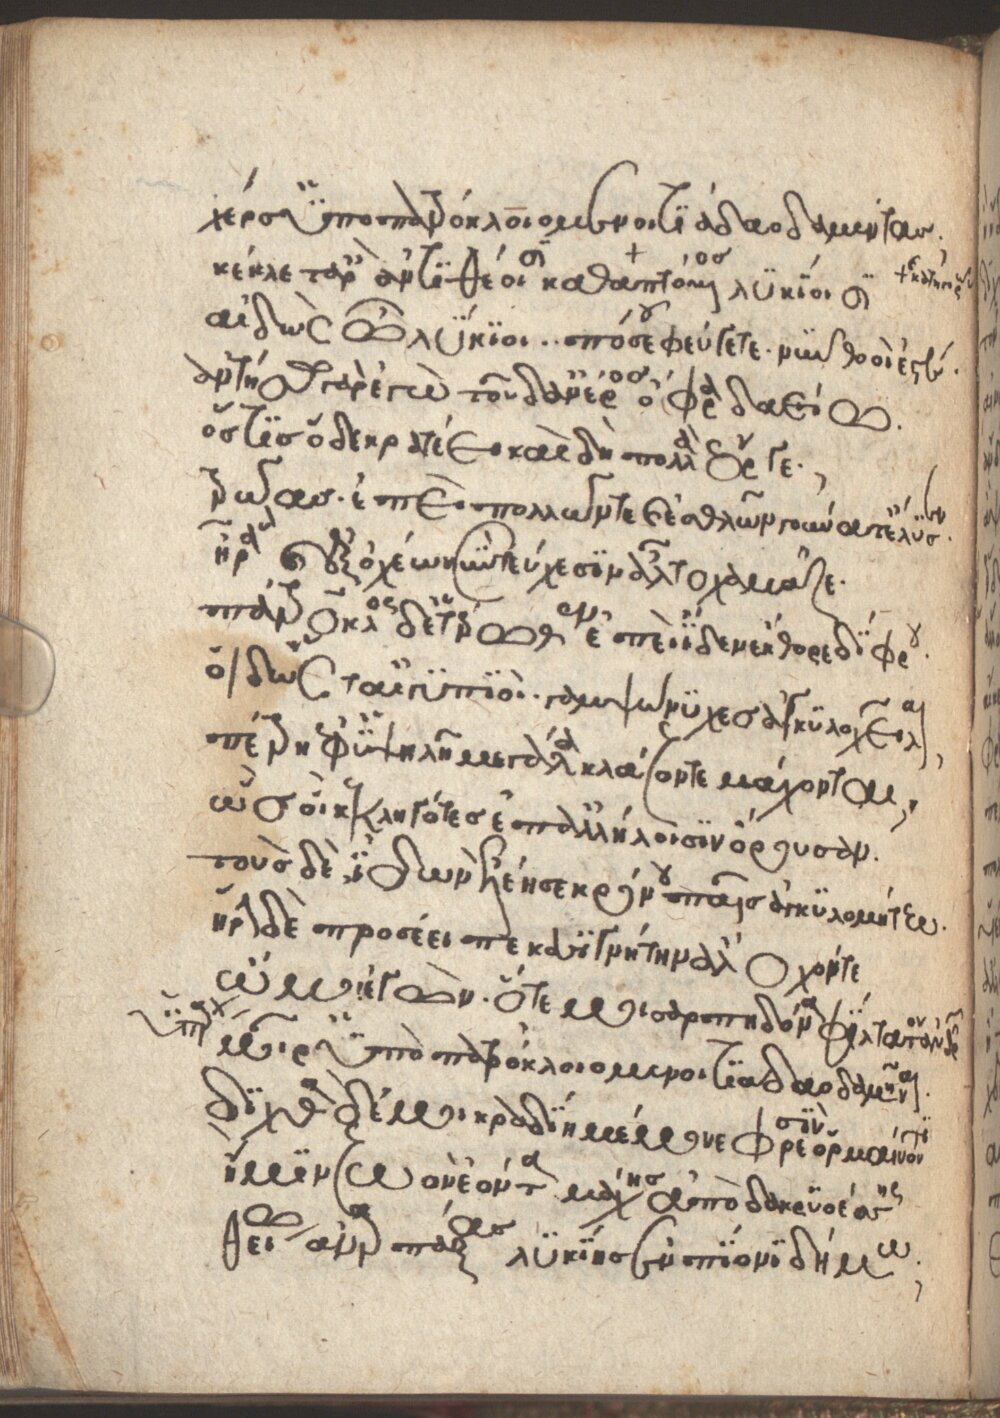 χέρσ ὕπο πατρόκλοιο μενοιτϊάδαο δαμέντας.
κέκλετ ἄρ ἀντϊθέοισϊ καθαπτόμενος λϋκίοισϊ
αἰδὼς ὦ λύκϊοι. πόσε φεύγετε. νῦν θοοὶ ἐστέ.
ἀντήσω γὰρ ἐγὼ τοῦ δ ἀνέρος ὄφρα δαείω.
ὅστϊς ὅδε κρατέει καὶ δὴ πολλὰ ἔοργε.,
τρῶας. ἐπεὶ πολλῶν τε καὶ ἐσθλῶν γούνατ ἔλϋσεν.
ἦ ῥα καὶ ἐξ ὀχέων σὺν τεύχεσϊν ἆλτο χαμᾶζε.
πάτροκλος δ ἑτέρωθεν ἐπεὶ ἴδεν ἔκθορε δίφρου.
οἱ δ ὥς τ αἰγϋπϊοὶ. γαμψώνϋχες ἀγκϋλοχεῖλαι,
πέτρη ἐφ ὑψηλῆ μεγάλα κλάζοντε μάχονται,
ὣς οἱ κεκλήγοτες ἐπ ἀλλήλοισϊν ὄρουσαν.
τοὺς δὲ ἰδὼν ἐλέησε κρόνου παῖς ἀγκϋλομήτεω.
ἥρην δὲ προσέειπε κασϊγνήτην ἄλοχόν τε
ὤ μοι ἐγὼν. ὅτε μοι σαρπηδόνα φίλτατον ἀνδρῶν
μοῖρ ὑπὸ πατρόκλοιο μενοιτϊάδαο δαμῆναι.
δϊχθὰ δέ μοι κραδίη μέμονε φρεσϊν ὁρμαίνοντϊ
ἤ μϊν ζωὸν ἐόντα μάχης ἀπὸ δακρϋοέσσης
θείω ἀναρπάξας λϋκίης ἐν πίονϊ δήμω.,